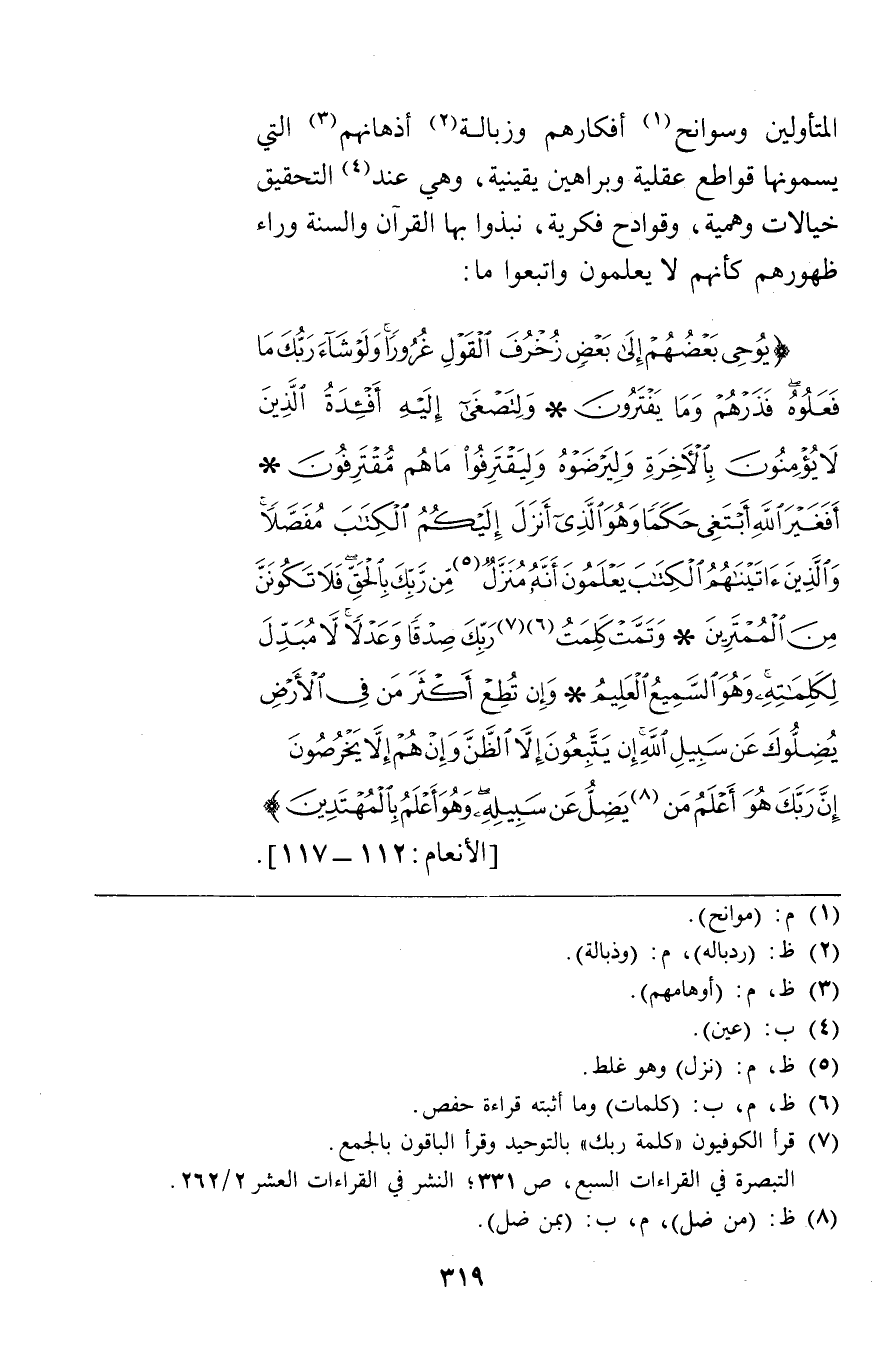 المتأولين وسوانح(١) أفكارهم وزبالة(٢) أذهانهم(٣) التي
يسمونها قواطع عقلية وبراهين يقينية، وهي عند(٤) التحقيق
خيالات وهمية، وقوادح فكرية، نبذوا بها القرآن والسنة وراء
ظهورهم كأنهم لا يعلمون واتبعوا ما:
﴿يُوحِى بَعْضُهُمْ إِلَىٰ بَعْضٍ زُخْرُفَ ٱلْقَوْلِ غُرُورًاۚ وَلَوْ شَآءَ رَبُّكَ مَا
فَعَلُوهُۖ فَذَرْهُمْ وَمَا يَفْتَرُونَ * وَلِتَصْغَىٰٓ إِلَيْهِ أَفْـِٔدَةُ ٱلَّذِينَ
لَا يُؤْمِنُونَ بِٱلْأَخِرَةِ وَلِيَرْضَوْهُ وَلِيَقْتَرِفُوا۟ مَا هُم مُّقْتَرِفُونَ *
أَفَغَيْرَ ٱللَّهِ أَبْتَغِى حَكَمًا وَهُوَ ٱلَّذِىٓ أَنزَلَ إِلَيْكُمُ ٱلْكِتَٰبَ مُفَصَّلًاۚ
وَٱلَّذِينَ ءَاتَيْنَٰهُمُ ٱلْكِتَٰبَ يَعْلَمُونَ أَنَّهُۥ مُنَزَّلٌ(٥) مِّن رَّبِّكَ بِٱلْحَقِّۖ فَلَا تَكُونَنَّ
مِنَ ٱلْمُمْتَرِينَ * وَتَمَّتْ كَلِمَتُ(٦)(٧) رَبِّكَ صِدْقًا وَعَدْلًاۚ لَّا مُبَدِّلَ
لِكَلِمَٰتِهِۦۚ وَهُوَ ٱلسَّمِيعُ ٱلْعَلِيمُ * وَإِن تُطِعْ أَكْثَرَ مَن فِى ٱلْأَرْضِ
يُضِلُّوكَ عَن سَبِيلِ ٱللَّهِۚ إِن يَتَّبِعُونَ إِلَّا ٱلظَّنَّ وَإِنْ هُمْ إِلَّا يَخْرُصُونَ
إِنَّ رَبَّكَ هُوَ أَعْلَمُ مَن(٨) يَضِلُّ عَن سَبِيلِهِۦۖ وَهُوَ أَعْلَمُ بِٱلْمُهْتَدِينَ﴾
[الأنعام: ١١٢ – ١١٧].
(١) م: (موانح).
(٢) ظ: (ردباله)، م: (وذبالة).
(٣) ظ، م: (أوهامهم).
(٤) ب: (عين).
(٥) ظ، م: (نزل) وهو غلط.
(٦) ظ، م، ب: (كلمات) وما أثبته قراءة حفص.
(٧) قرأ الكوفيون «كلمة ربك» بالتوحيد وقرأ الباقون بالجمع.
التبصرة في القراءات السبع، ص ٣٣١؛ النشر في القراءات العشر ٢٦٢/٢.
(٨) ظ: (من ضل)، م، ب: (بمن ضل).
٣١٩